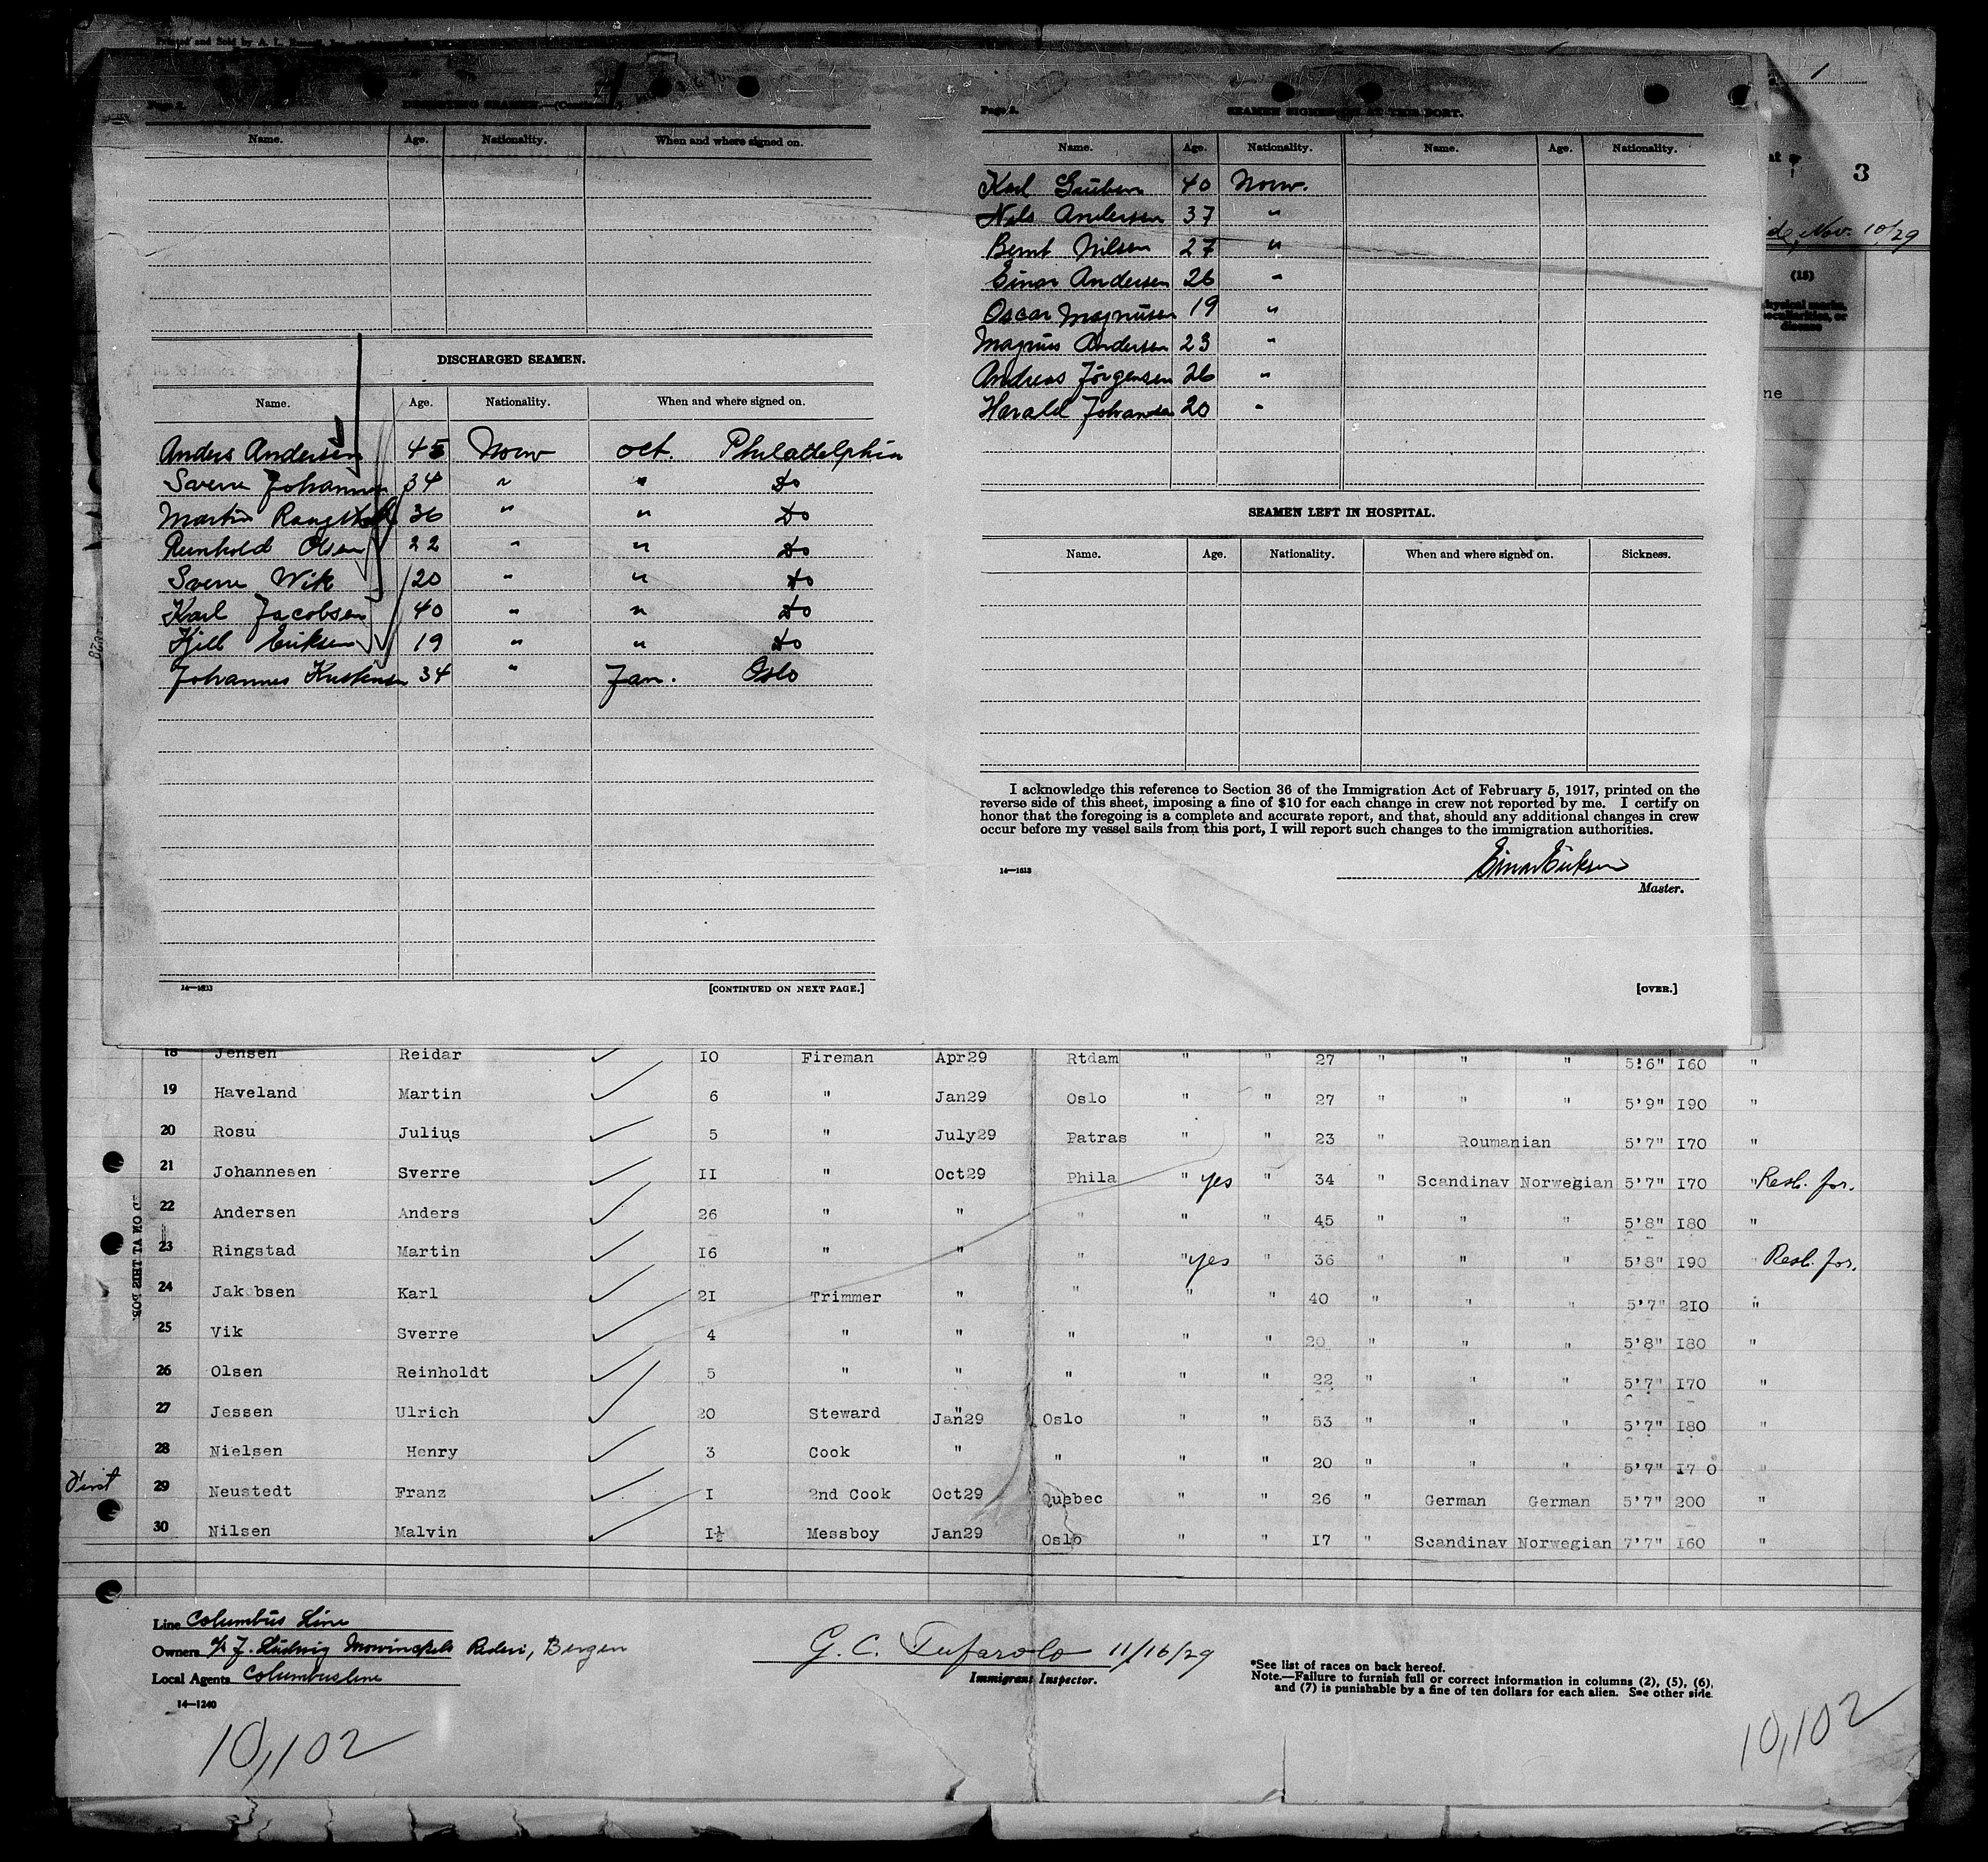 Page 2. DESERTING SEAMEN.—(Continued.)
Name. Age. Nationality. When and where signed on.
DISCHARGED SEAMEN.
Name. Age. Nationality. When and where signed on.
Anders Andersen 45 Norw oct. Philadelphia
Sverre Johannesen 34 " " Do
Martin 36 " " Do
Reinhold Olsen 22 " " Do
Sverre Wik 20 " " Do
Karl Jacobsen 40 " " Do
Kjell Eriksen 19 " " Do
Johannes Kristensen 34 " Jan. Oslo
14—1613 [CONTINUED ON NEXT PAGE.]
Page 3. SEAMEN SIGNED ON AT THIS PORT.
Name. Age. Nationality. Name. Age. Nationality.
Karl 40 Norw.
Nils Andersen 37 "
Bernt Nilsen 27 "
Einar Andersen 26 "
Oscar Magnusen 19 "
Magnus Andersen 23 "
Andreas Jörgensen 26 "
Harald Johansen 20 "
SEAMEN LEFT IN HOSPITAL.
Name. Age. Nationality. When and where signed on. Sickness.
I acknowledge this reference to Section 36 of the Immigration Act of February 5, 1917, printed on the
reverse side of this sheet, imposing a fine of $10 for each change in crew not reported by me. I certify on
honor that the foregoing is a complete and accurate report, and that, should any additional changes in crew
occur before my vessel sails from this port, I will report such changes to the immigration authorities.
Einar Eriksen
14—1613 Master.
[OVER.]
1
3
Nov. 10/29
(15)
physical marks,
peculiarities, or
disease
18 Jensen Reidar 10 Fireman Apr29 Rtdam " " 27 " " " 5'6" 160 "
19 Haveland Martin 6 " Jan29 Oslo " " 27 " " " 5'9" 190 "
20 Rosu Julius 5 " July29 Patras " " 23 " Roumanian 5'7" 170 "
21 Johannesen Sverre 11 " Oct29 Phila " yes " 34 " Scandinav Norwegian 5'7" 170 "
22 Andersen Anders 26 " " " " " 45 " " " 5'8" 180 "
23 Ringstad Martin 16 " " " " yes " 36 " " " 5'8" 190 "
24 Jakobsen Karl 21 Trimmer " " " " 40 " " " 5'7" 210 "
25 Vik Sverre 4 " " " " " 20 " " " 5'8" 180 "
26 Olsen Reinholdt 5 " " " " " 22 " " " 5'7" 170 "
27 Jessen Ulrich 20 Steward " Jan29 Oslo " " 53 " " " 5'7" 180 "
28 Nielsen Henry 3 Cook " " " " 20 " " " 5'7" 170 "
First 29 Neustedt Franz 1 2nd Cook Oct29 Quebec " " 26 " German German 5'7" 200 "
30 Nilsen Malvin 1½ Messboy Jan29 Oslo " " 17 " Scandinav Norwegian 7'7" 160 "
Line Columbus Line
Owners A/S J. Ludwig Mowinckels Rederi, Bergen
Local Agents Columbusline
14—1240
G. C. Tufarolo 11/16/29
Immigrant Inspector.
*See list of races on back hereof.
Note.—Failure to furnish full or correct information in columns (2), (5), (6),
and (7) is punishable by a fine of ten dollars for each alien. See other side.
10,102
10,102